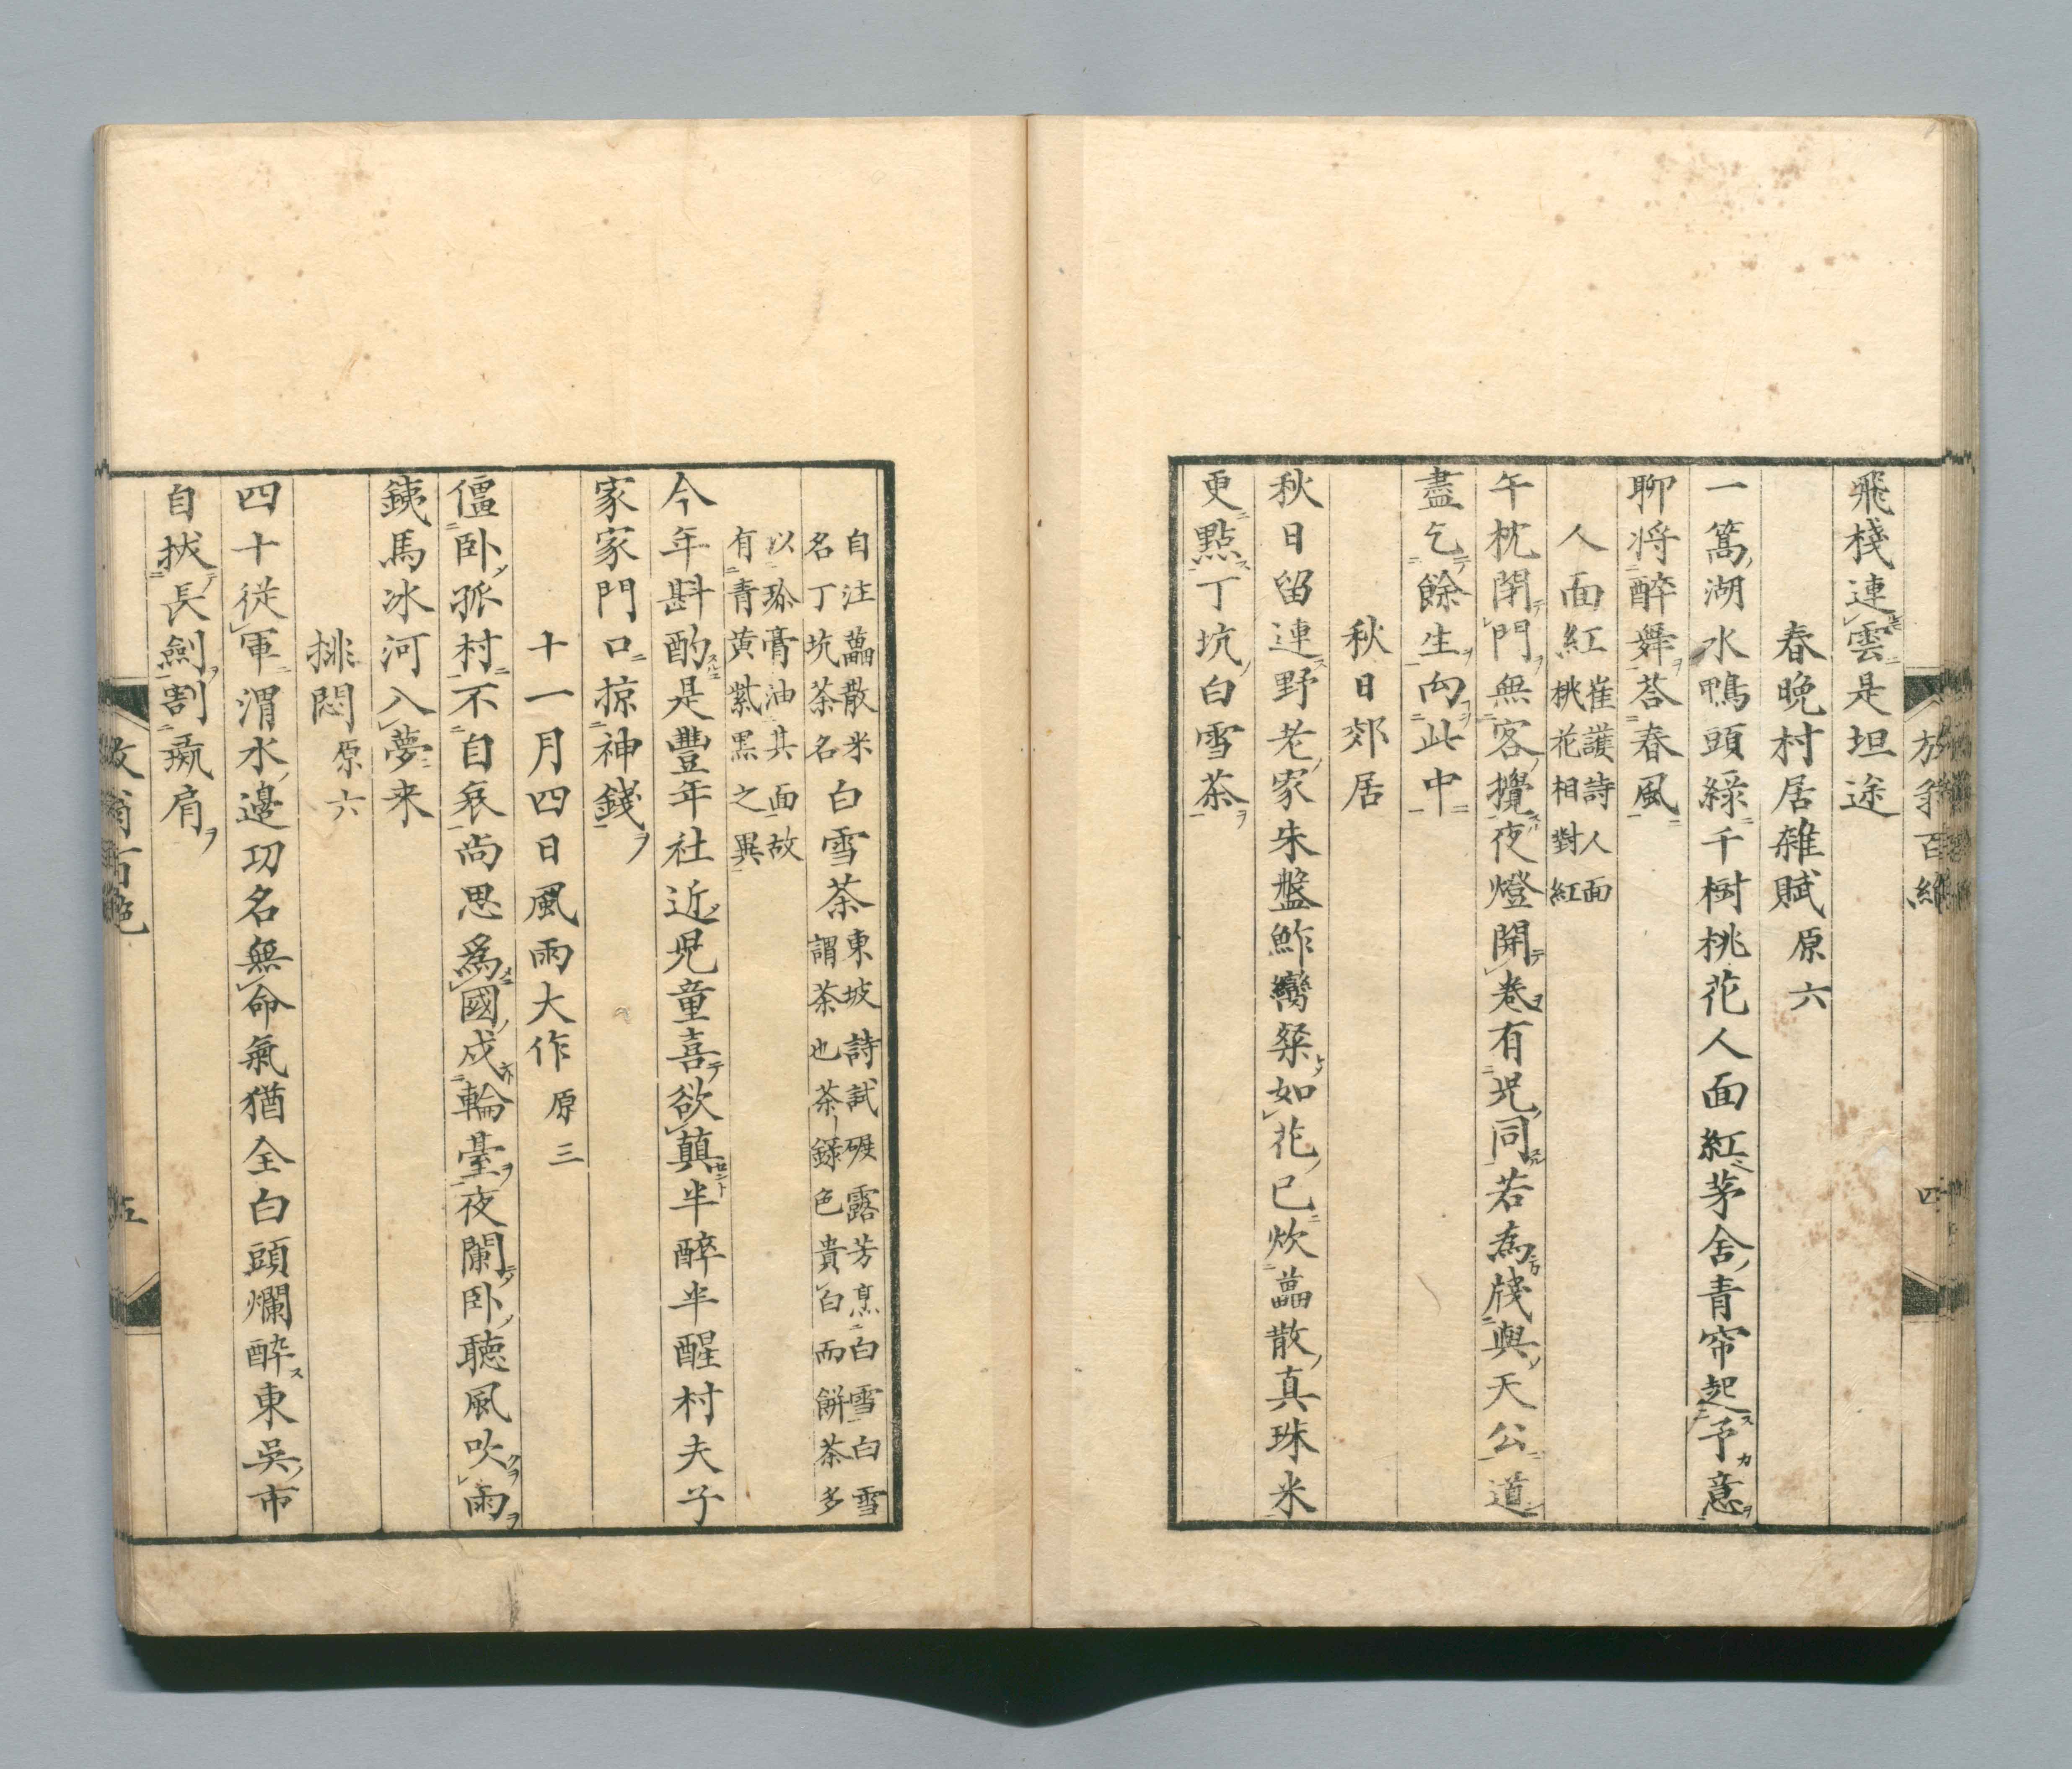 飛棧連雲是坦途
春晚村居雜賦 原六
一篙湖水鴨頭綠千樹桃花人面紅茅舍青帘起予意
聊将醉舞荅春風
人面紅 崔護詩人面
桃花相對紅
午枕閉門無客攪夜燈開卷有児同若為牋與天公道
盡乞餘生向此中
秋日郊居
秋日留連野老家朱盤鮓臠粲如花已炊藟散真珠米
更點丁坑白雪茶
自注藟散米
名丁坑茶名
白雪茶
東坡詩試碾露芳烹白雪白雪
謂茶也茶錄色貴白而餅茶多
以珎膏油其面故
有青黄紫黒之異
今年斟酌是豐年社近児童喜欲顛半醉半醒村夫子
家家門口掠神錢
十一月四日風雨大作 原三
僵卧孤村不自哀尚思爲國戍輪臺夜闌卧聴風吹雨
銕馬冰河入夢来
排悶 原六
四十從軍渭水邊功名無命氣猶全白頭爛醉東吳市
自拔長劍割彘肩